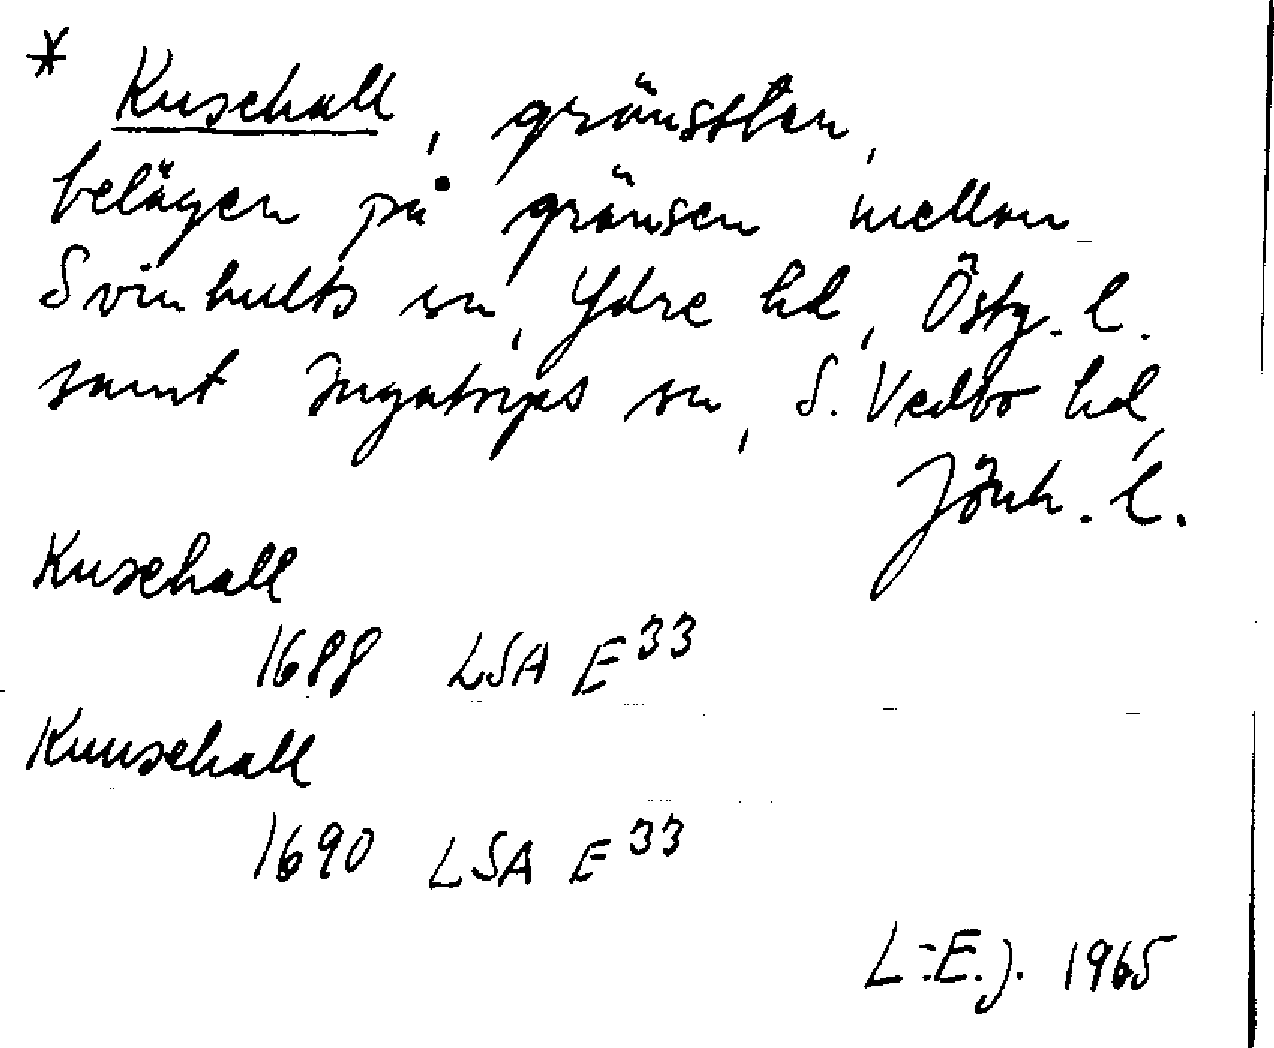 * Kuschall, gränssten,
belägen på gränsen mellan
Svinhults sn, Ydre hd, Östg. l.
samt Ingatorps sn, S. Vedbo hd,
Jönk. l.
Kuschall
1688 LSA E 33
Kuuschall
1690 LSA E 33
L.-E. J. 1965